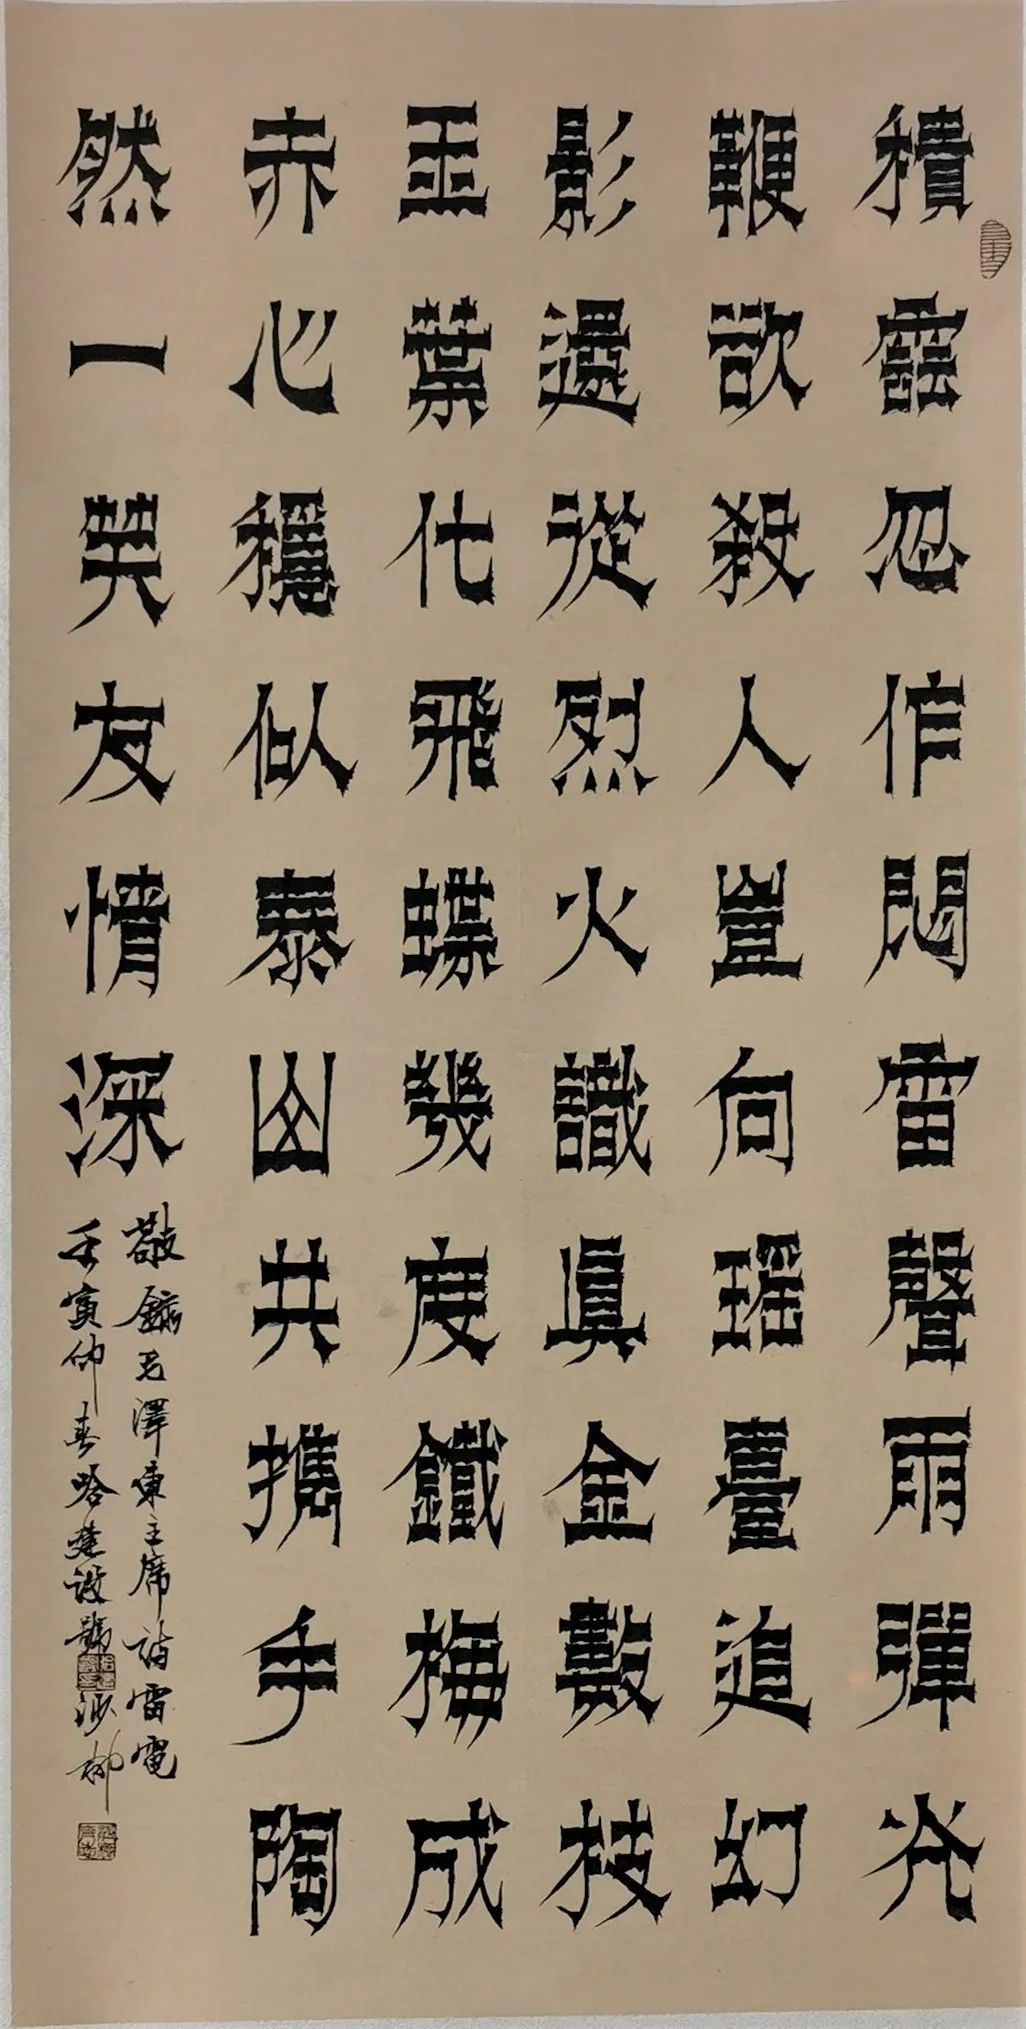 積雲忽作悶雷聲雨彈光
鞭欲殺人豈向瑶臺追幻
影還從烈火識真金數枝
玉葉化飛蝶幾度鐵梅成
赤心穩似泰山共携手陶
然一笑友情深
敬錄毛澤東主席詩雷電
壬寅仲春哈建設號沙柳